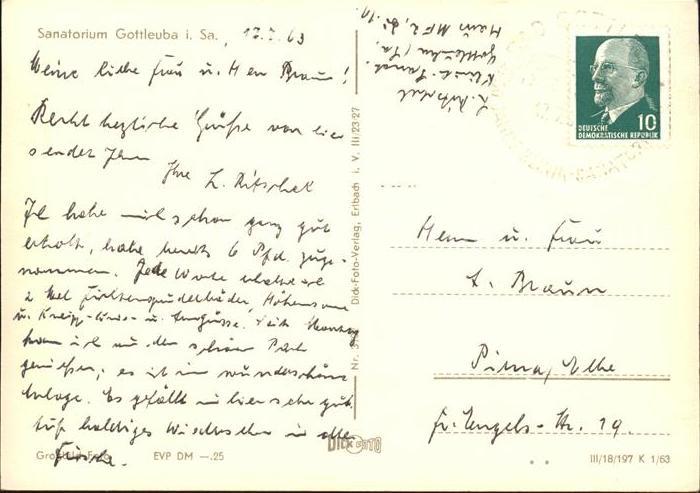 Sanatorium Gottleuba i. Sa., 17.7.63
Meine liebe Frau u. Herr Braun!
Recht herzliche Grüße von hier
sendet Ihnen
Ihre L. Ritschel
Ich habe mich schon ganz gut
erholt, habe bereits 6 Pfd. zuge-
nommen. Jede Woche
2 Mal Fichtennadelbäder, Höhensonne
u. Kneipp- u. Seit Montag
kann ich nun den schönen Park
genießen; es ist ein wunderschöne
Anlage. Es gefällt mir hier sehr gut
Auf baldiges Wiedersehen in alter
Frische.
EVP DM —.25
Dick-Foto-Verlag, Erlbach i. V. III/23/27
DICK FOTO
L. Ritschel
Klinik-Sanat.
Gottleuba/Sa.
Haus MF2,
DEUTSCHE
DEMOKRATISCHE REPUBLIK
10
Herrn u. Frau
Braun
Pirna/Elbe
Fr. Engels-Str. 19.
III/18/197 K 1/63